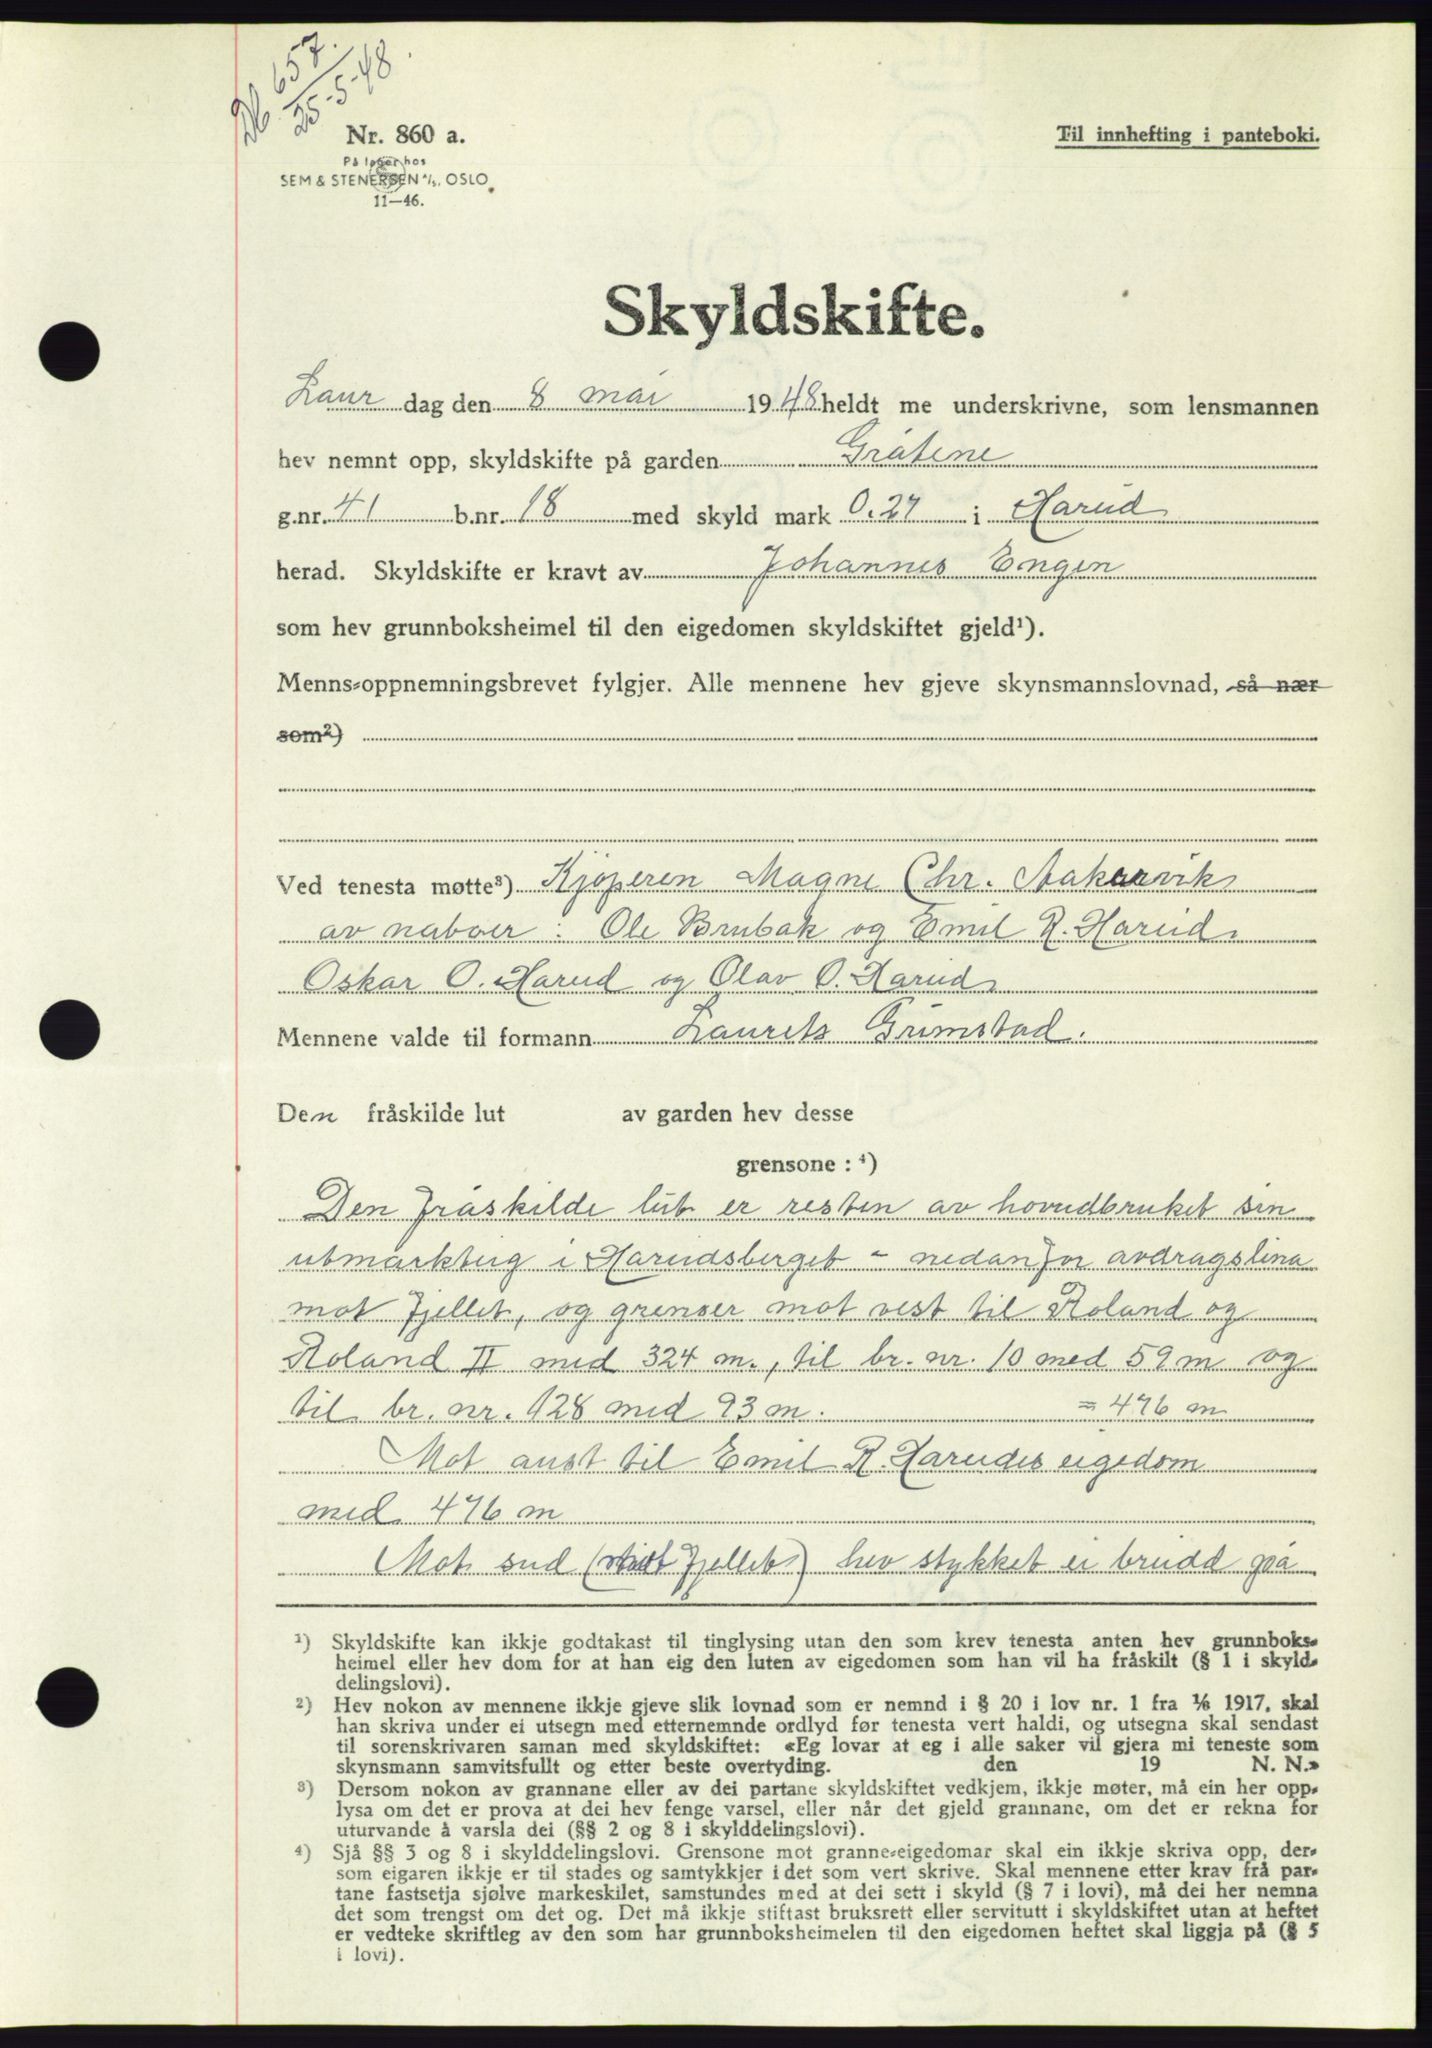 Db 657.
25-5-48.
Nr. 860 a.
På lager hos
SEM & STENERSEN A/S, OSLO
11—46.
Til innhefting i panteboki.
Skyldskifte.
Laur dag den 8 mai 1948 heldt me underskrivne, som lensmannen
hev nemnt opp, skyldskifte på garden Gråtene
g.nr. 41 b.nr. 18 med skyld mark 0.27 i Hareid
herad. Skyldskifte er kravt av Johannes Engen
som hev grunnboksheimel til den eigedomen skyldskiftet gjeld¹).
Menns-oppnemningsbrevet fylgjer. Alle mennene hev gjeve skynsmannslovnad, så nær
som²)
Ved tenesta møtte³) Kjøperen Magne Chr. Aakarvik
av naboer: Ole Brubak og Emil R. Hareid.
Oskar O. Hareid og Olav O. Hareid
Mennene valde til formann Laurits Grimstad.
Den fråskilde lut av garden hev desse
grensone : ⁴)
Den fråskilde lut er resten av hovudbruket sin
utmarkteig i Hareidsberget - nedanfor avdragslina
mot fjellet, og grenser mot vest til Roland og
Roland II med 324 m., til br. nr. 10 med 59 m og
til br. nr. 128 med 93 m. = 476 m
Mot aust til Emil R. Hareides eigedom
med 476 m
Mot sud (mot fjellet) hev stykket ei breidd på
¹) Skyldskifte kan ikkje godtakast til tinglysing utan den som krev tenesta anten hev grunnboks-
heimel eller hev dom for at han eig den luten av eigedomen som han vil ha fråskilt (§ 1 i skyld-
delingslovi).
²) Hev nokon av mennene ikkje gjeve slik lovnad som er nemnd i § 20 i lov nr. 1 fra 1/6 1917, skal
han skriva under ei utsegn med etternemnde ordlyd før tenesta vert haldi, og utsegna skal sendast
til sorenskrivaren saman med skyldskiftet: «Eg lovar at eg i alle saker vil gjera mi teneste som
skynsmann samvitsfullt og etter beste overtyding. den 19 N. N.»
³) Dersom nokon av grannane eller av dei partane skyldskiftet vedkjem, ikkje møter, må ein her opp-
lysa om det er prova at dei hev fenge varsel, eller når det gjeld grannane, om det er rekna for
uturvande å varsla dei (§§ 2 og 8 i skylddelingslovi).
⁴) Sjå §§ 3 og 8 i skylddelingslovi. Grensone mot granne-eigedomar skal ein ikkje skriva opp, der-
som eigaren ikkje er til stades og samtykkjer i det som vert skrive. Skal mennene etter krav frå par-
tane fastsetja sjølve markeskilet, samstundes med at dei sett i skyld (§ 7 i lovi), må dei her nemna
det som trengst om det og. Det må ikkje stiftast bruksrett eller servitutt i skyldskiftet utan at heftet
er vedteke skriftleg av den som har grunnboksheimelen til den eigedomen heftet skal liggja på (§ 5
i lovi).